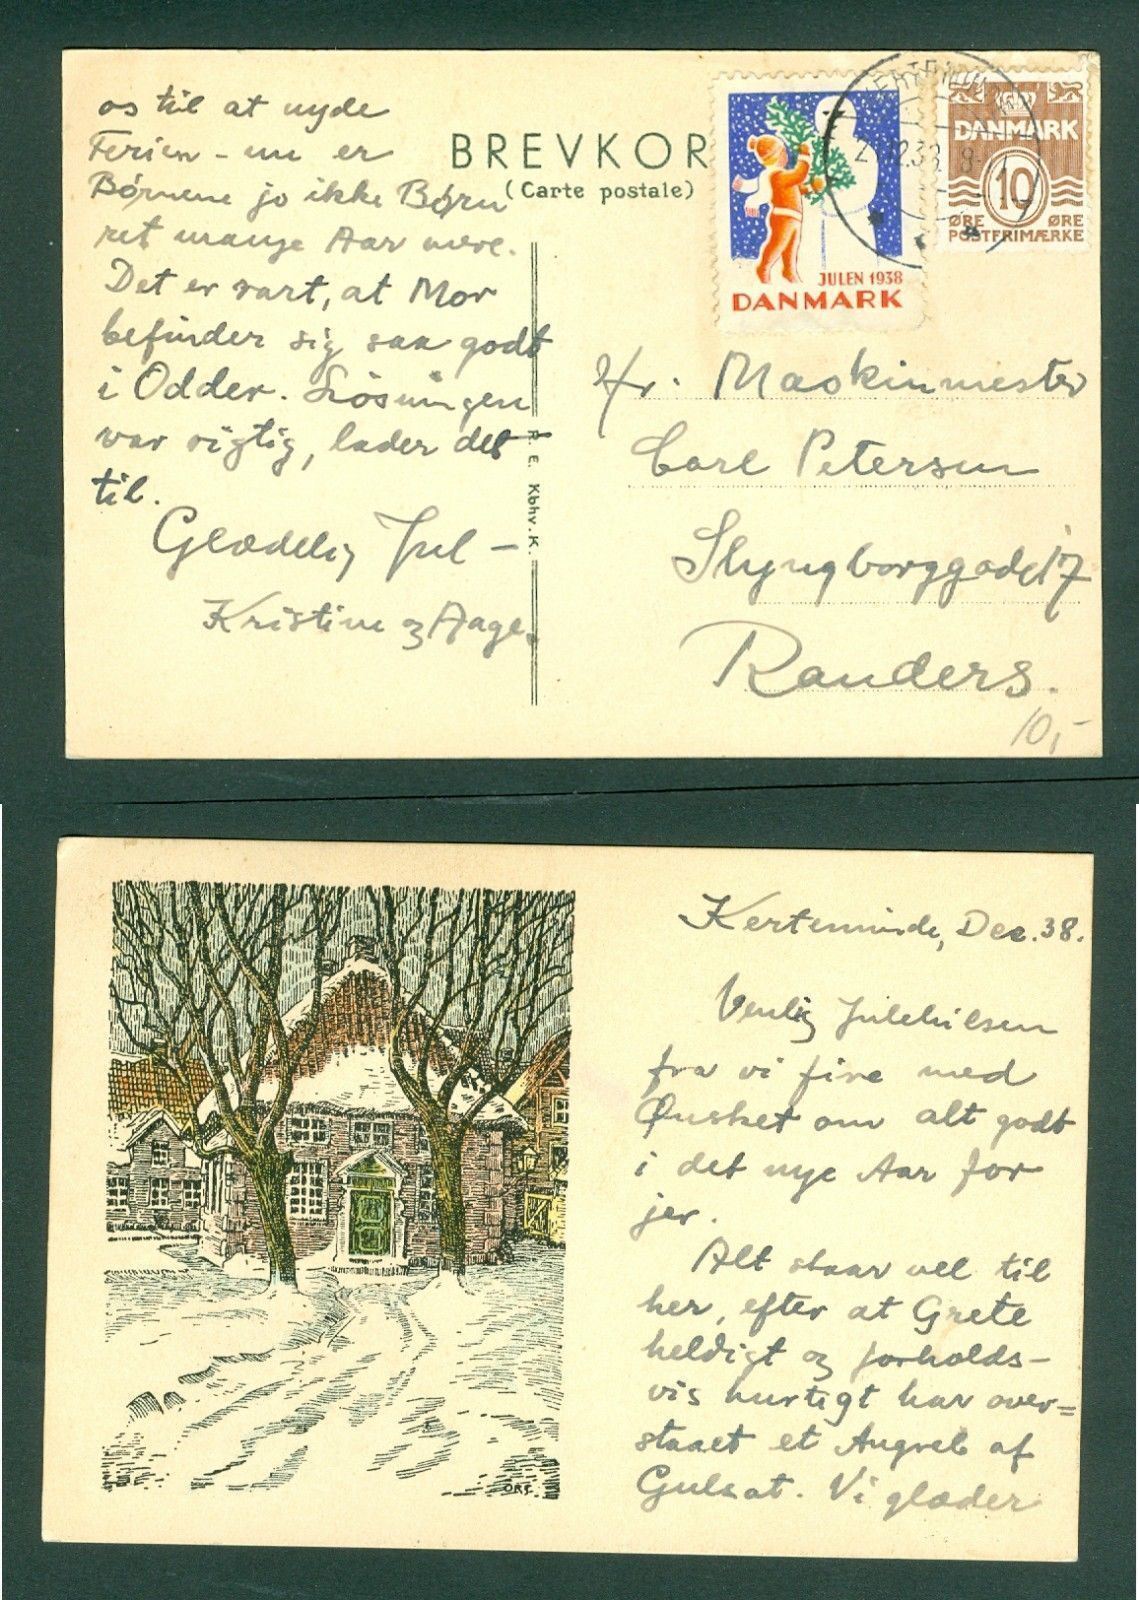 os til at nyde
Ferien - nu er
Børnene jo ikke Børn
ret mange Aar mere.
Det er rart, at Mor
befinder sig saa godt
i Odder. Løsningen
var rigtig, lader det
til.
Glædelig Jul -
Kristine og Aage.
BREVKOR
(Carte postale)
R. E. Kbhv. K.
JULEN 1938
DANMARK
DANMARK
10
ØRE ØRE
POSTFRIMÆRKE
Hr. Maskinmester
Carl Petersen
17
Randers.
10,-
Kerteminde, Dec. 38.
Venlig Julehilsen
fra vi fire med
Ønsket om alt godt
i det nye Aar for
jer.
Alt staar vel til
her, efter at Grete
heldigt og forholds-
vis hurtigt har over=
staaet et Angreb af
Gulsot. Vi glæder